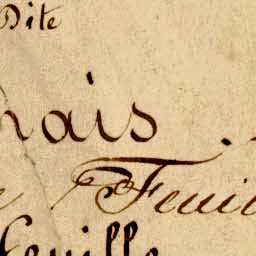 Dite
nais.
e Feuil
feuille